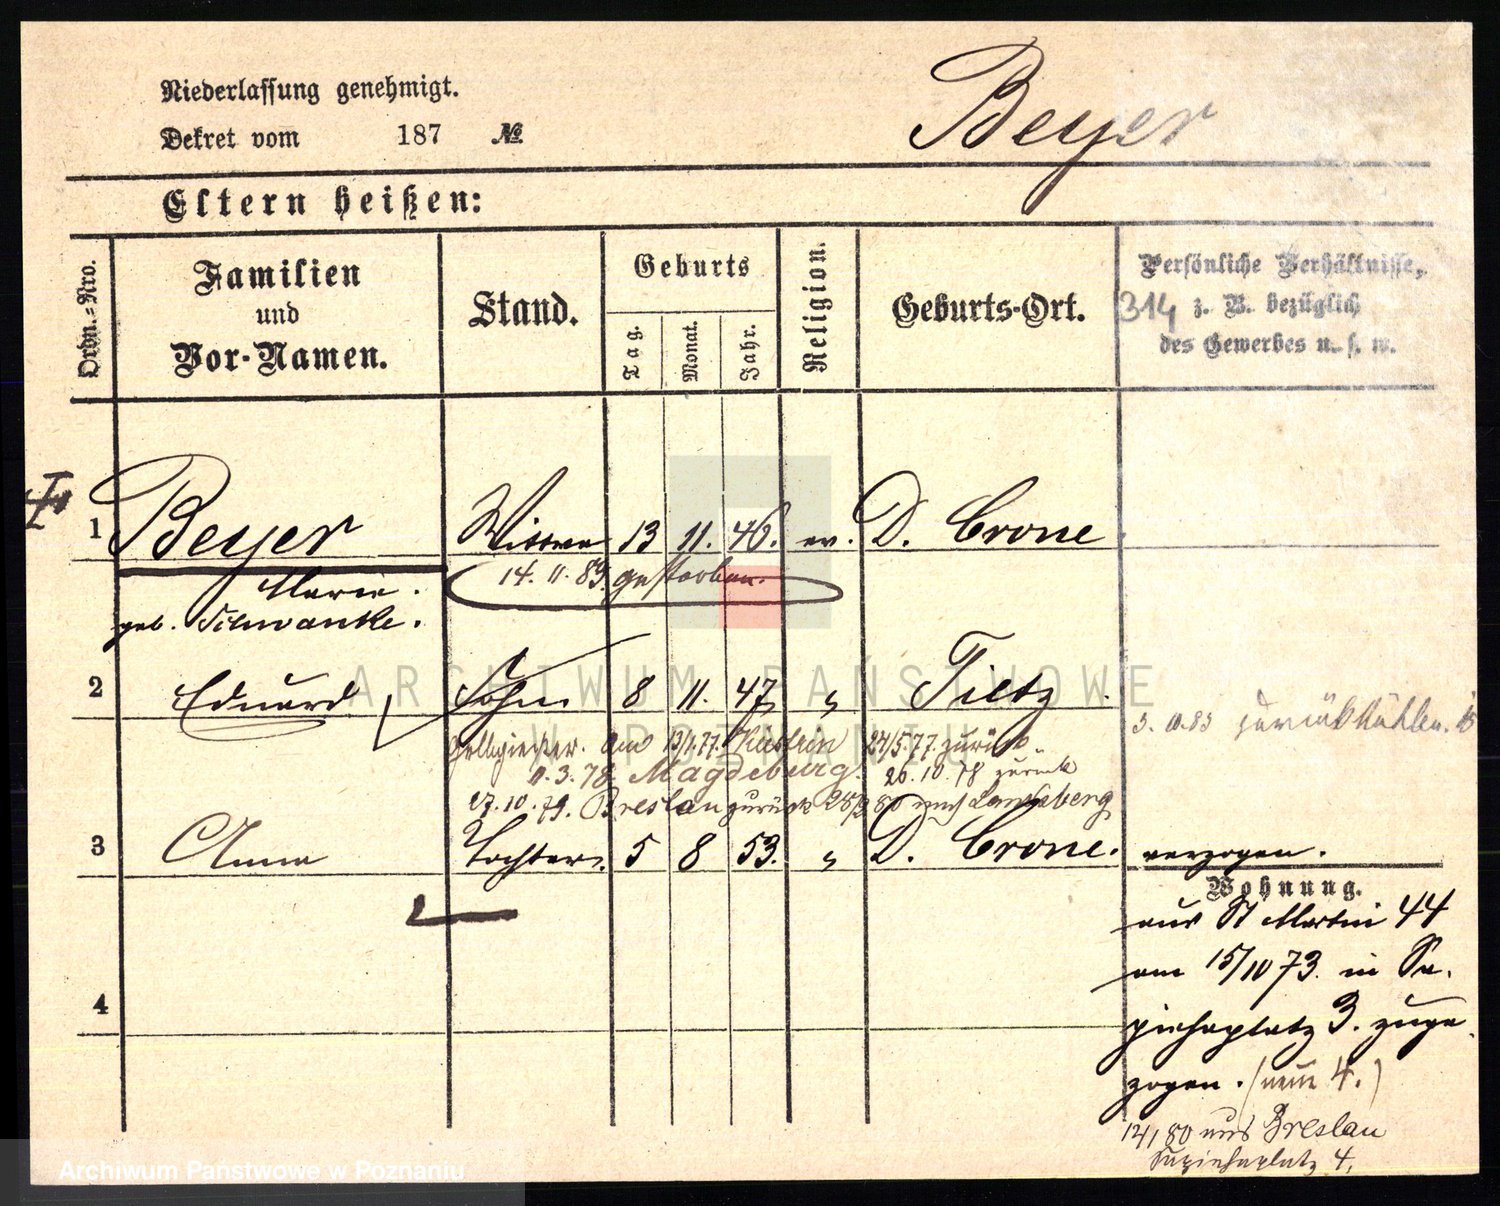 Niederlassung genehmigt.
Dekret vom 187 №
Beyer
Eltern heißen:
Ordn.=Nro.
Familien
und
Vor-Namen.
Stand.
Geburts
Tag.
Monat.
Jahr.
Religion.
Geburts-Ort.
Persönliche Verhältnisse,
314 z. B. bezüglich
des Gewerbes u. s. w.
1 Beyer Wittwe 13 11. 46. ev. D. Crone
14. 11. 89. gestorben.
Marie.
geb. Schwanke.
2 Eduard Sohn 8 11. 47 " Tietz
3. 10.83 zurück
am 13/1.77. Küstrin 24/5.77. zurück.
11.3.78. Magdeburg. 20.10.78 zurück
17.10.79. Breslau zurück 80 nach Landsberg
3 Anna Tochter. 5 8 53. " D. Crone. verzogen.
Wohnung.
aus St Martin 44
am 15/10 73. in Sa-
piehaplatz 3. zuge-
zogen. (neue 4.)
80 aus Breslau
Sapiehaplatz 4.
4
ARCHIWUM PAŃSTWOWE
W POZNANIU
Archiwum Państwowe w Poznaniu